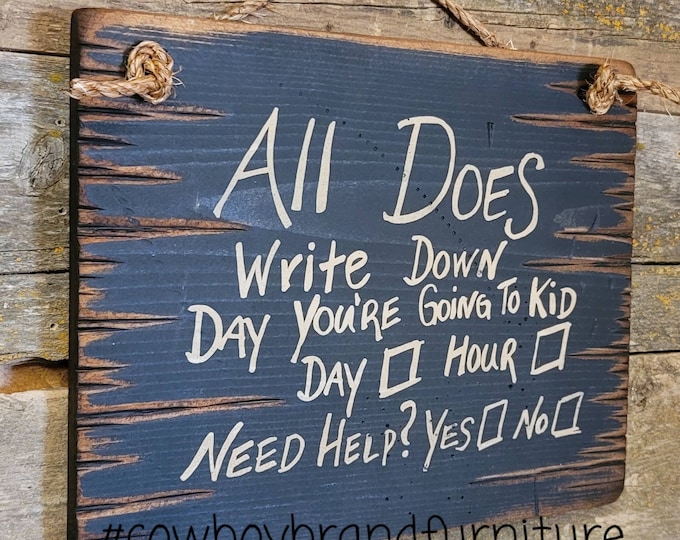 All DOES
Write DOWN
DAY YOU'RE GOING TO KID
DAY HOUR
NEED HELP? YES NO
#cowboybrandfurniture